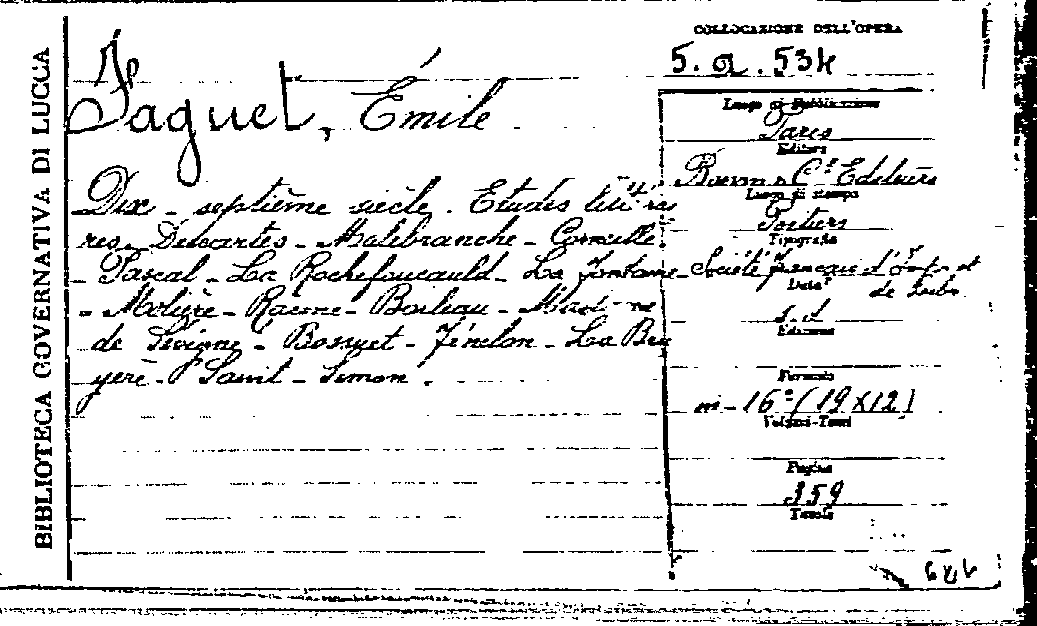 BIBLIOTECA GOVERNATIVA DI LUCCA
COLLOCAZIONE DELL'OPERA
5. a. 534
Faguet, Émile
Luogo di Pubblicazione
Paris
Editore
Dix-septième siècle. Etudes littérai-
res. Descartes - Malebranche - Corneille.
Pascal - La Rochefoucauld - La Fontaine
- Molière - Racine - Boileau - Mad. me
de Sévigné - Bossuet - Fénelon - La Bru
yère - Saint-Simon.
& C.ie Editeurs
Luogo di stampa
Poitiers
Tipografia
Société française d'Impr. et
de Libr.
Data
s. d.
Edizione
Formato
in-16° (19 x 12)
Volumi-Tomi
Pagine
359
Tavole